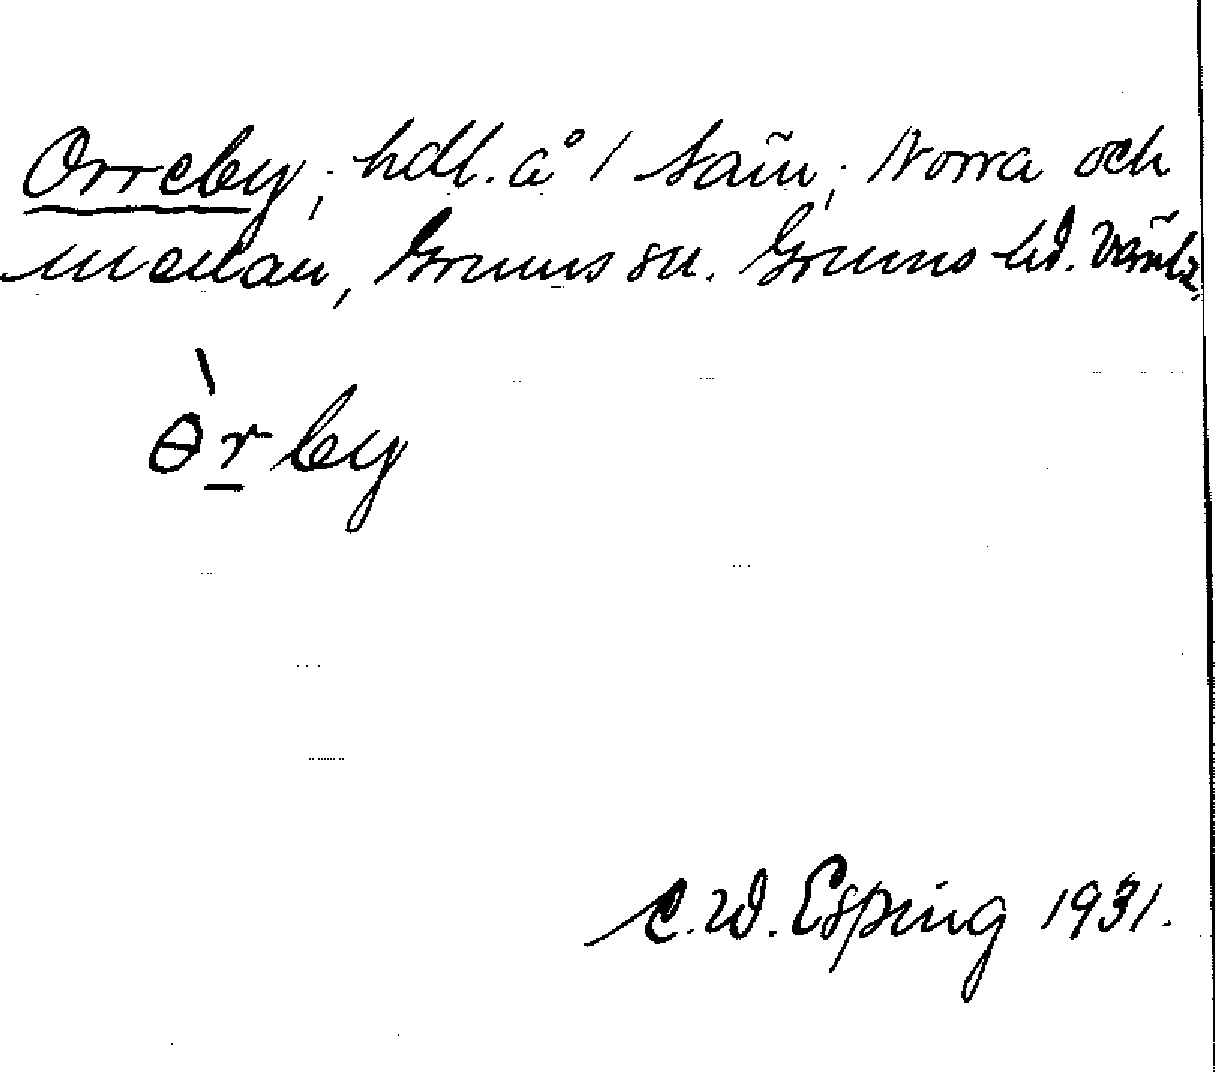 Orreby, hdl. å / Säm, Norra och
mellan, Grums sn. Grums hd. Värml.
ɵ̀r by
C. W. Esping 1931.